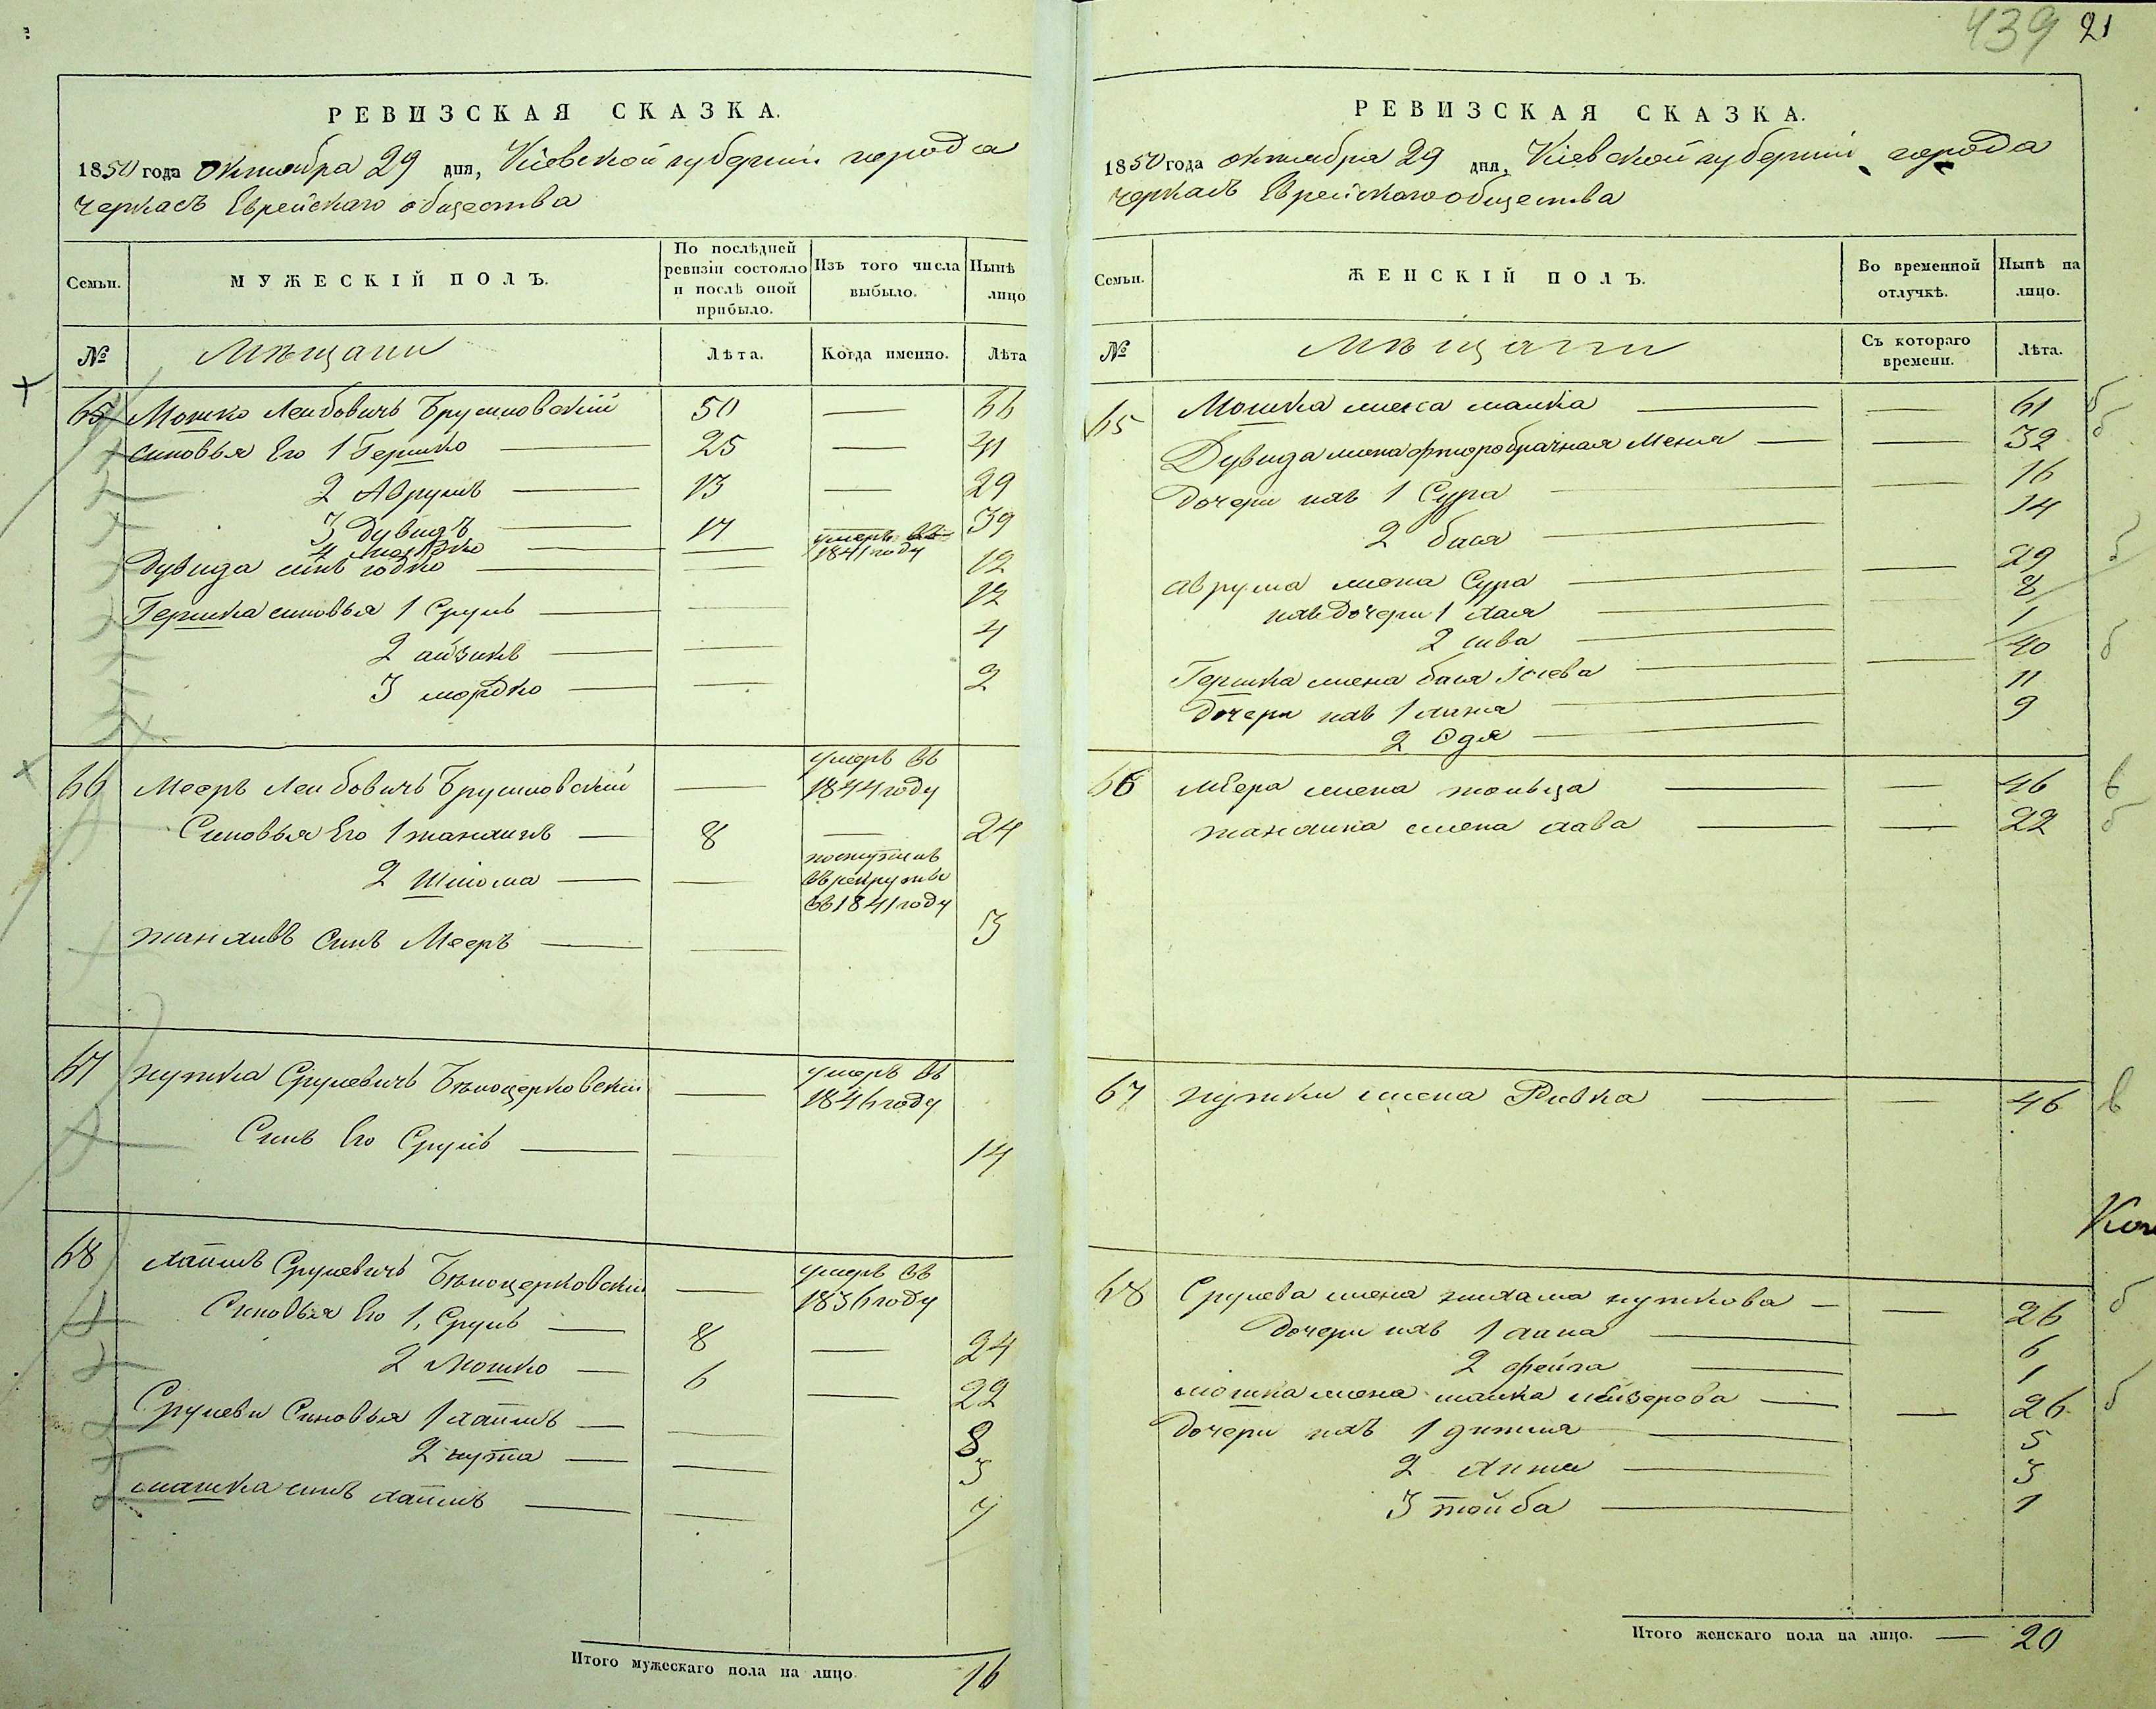 439 21
РЕВИЗСКАЯ СКАЗКА.
1850 года октября 29 дня, Кіевской губерніи города
Черкасъ Еврейскаго общества
Семьи.
МУЖЕСКІЙ ПОЛЪ.
По послѣдней ревизіи состояло и послѣ оной прибыло.
Изъ того числа выбыло.
Нынѣ лицо
№
Мѣщани
Лѣта.
Когда именно.
Лѣта
65 Мошко Лейбовичъ Брусиловскій 50 — 66
Синовья Его 1 Гершко — 25 — 41
2 Аврумъ — 13 — 29
3 Дувидъ — 17 39
4 — — умеръ въ 1841 году
Дувида синъ Іодко — — 12
Гершка синовья 1 Сруль — — 12
2 айзикъ — — 4
3 мордко — — 2
66 Мееръ Лейбовичъ Брусиловскій — умеръ въ 1844 году
Синовья Его 1 — 8 — 24
2 Шліома — — поступилъ въ рекруты въ 1841 году
синъ Мееръ — — 3
67 Срулевичъ Бѣлоцерковскій — умеръ въ 1846 году
Синъ Его Сруль — — 14
68 Хаимъ Срулевичъ Бѣлоцерковскій — умеръ въ 1836 году
Синовья Его 1, Сруль — 8 — 24
2 Мошко — 6 — 22
Срулеви Синовья 1 Хаимъ — — 8
2 нута — — 3
мошка синъ хаимъ — — 7
Итого мужескаго пола на лицо 16
РЕВИЗСКАЯ СКАЗКА.
1850 года октября 29 дня, Кіевской губерніи города
Черкасъ Еврейскаго общества
Семьи.
ЖЕНСКІЙ ПОЛЪ.
Во временной отлучкѣ.
Нынѣ на лицо.
№
Мѣщани
Съ котораго времени.
Лѣта.
65 Мошка жена малка — — 61
Дувида жена фторобрачная Меня — — 32
Дочери ихъ 1 Сура — — 16
2 бася — 14
аврума жена Сура — — 29
ихъ дочери 1 хая — 8
2 шва — 1
Гершка жена бася Іосева — — 40
Дочери ихъ 1 — 11
2 Одя — 9
66 меера жена — — 46
жена хава — — 22
67 жена Ривка — — 46
68 Срулева жена — — 26
Дочери ихъ 1 хана — 6
2 фейга — 1
мошка жена малка лейзерова — — 26
Дочери ихъ 1 — 5
2 — 3
3 тойба — 1
Итого женскаго пола на лицо. — 20